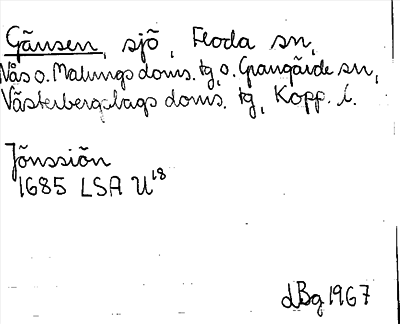 Gänsen, sjö, Floda sn,
Nås o. Malungs doms. tg, o. Grangärde sn,
Västerbergslags doms. tg, Kopp. l.
Jönssiön
1685 LSA U¹⁸
dBg 1967